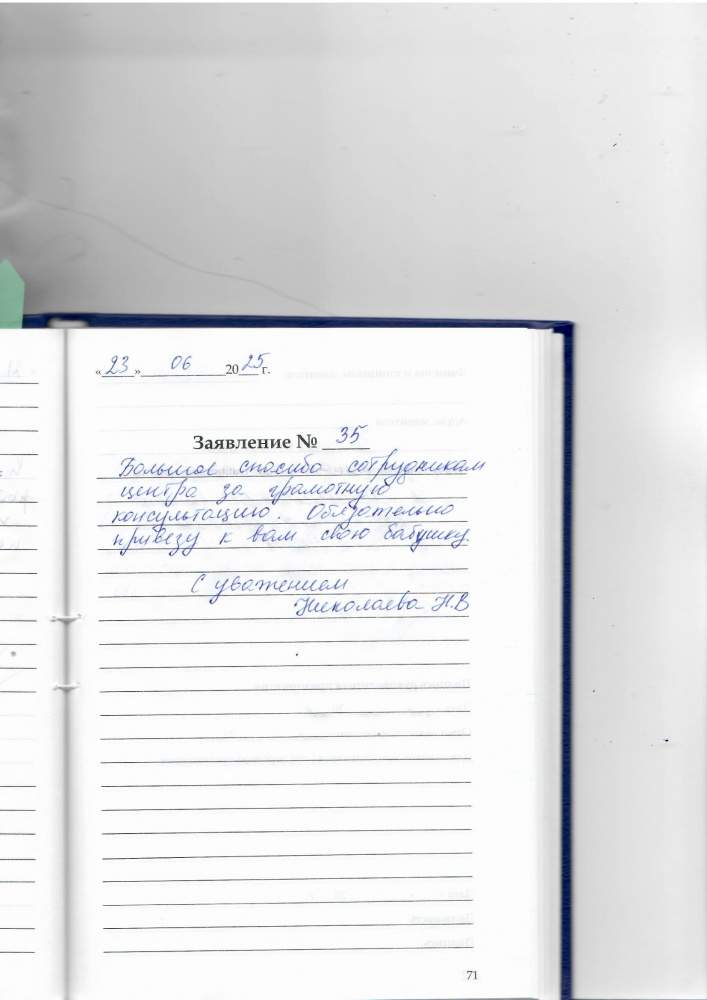 «23» 06 2025 г.
Заявление № 35
Большое спасибо сотрудникам
центра за грамотную
консультацию. Обязательно
привезу к вам свою бабушку.
С уважением
Николаева Н.В
71